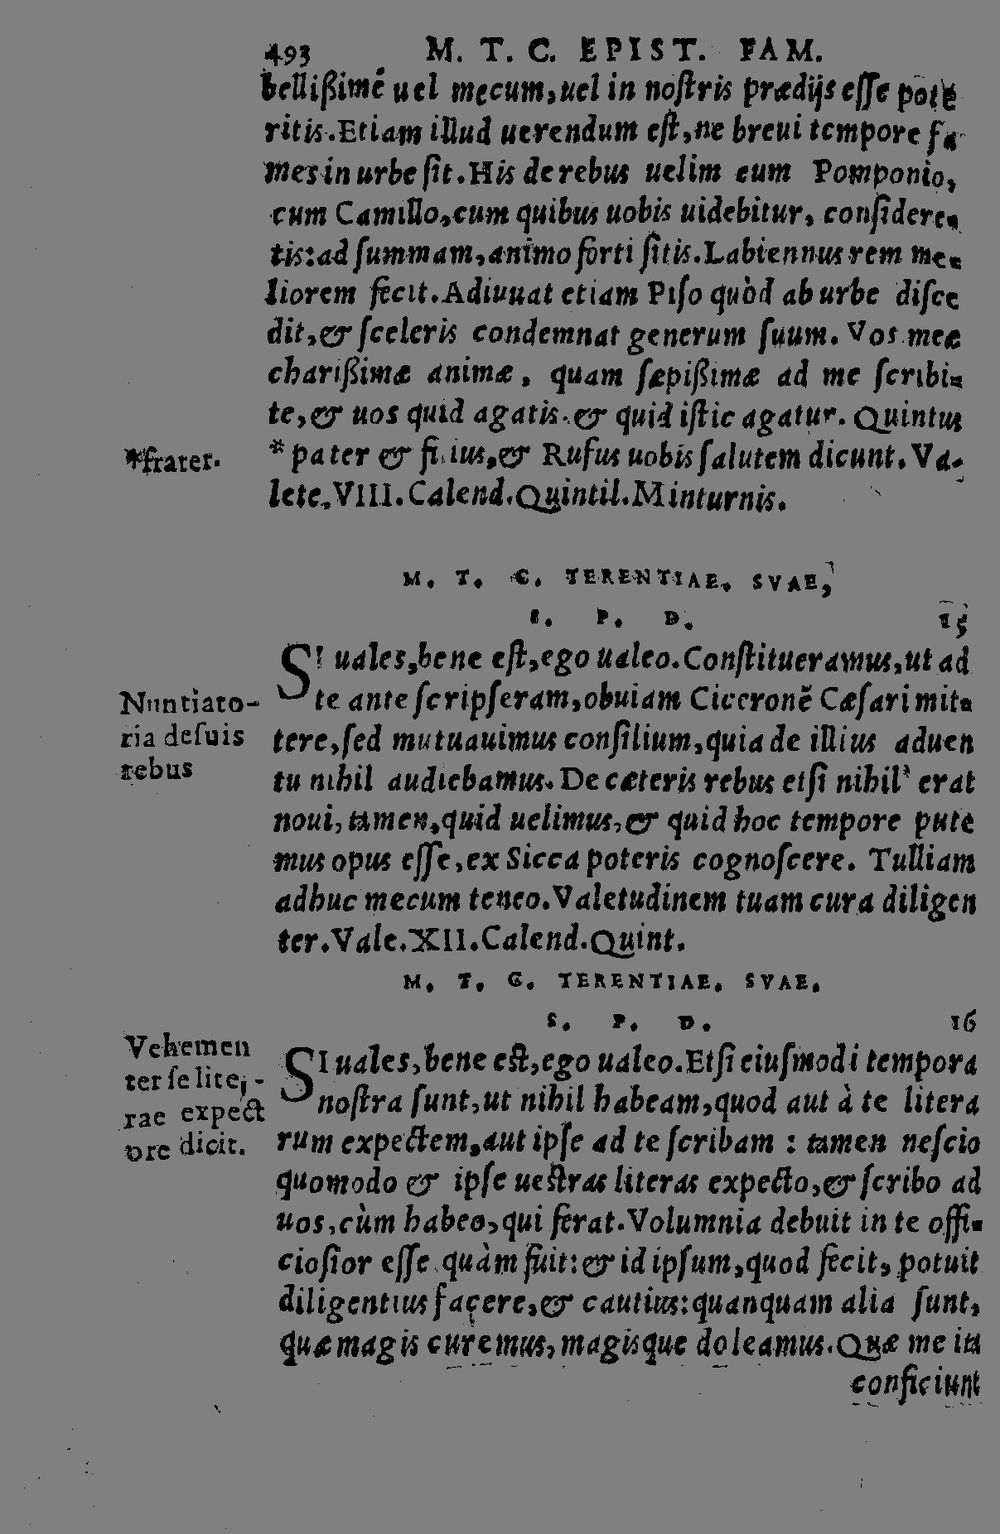 493 M. T. C. EPIST. FAM.
bellißimè uel mecum, uel in nostris prædijs esse pote
ritis. Etiam illud uerendum est, ne breui tempore fa-
mes in urbe sit. His de rebus uelim cum Pomponio,
cum Camillo, cum quibus uobis uidebitur, consideren
tis: ad summam, animo forti sitis. Labiennus rem me-
liorem fecit. Adiuuat etiam Piso quòd ab urbe disce
dit, & sceleris condemnat generum suum. Vos meæ
charißimæ animæ, quam sæpißimæ ad me scribi-
te, & uos quid agatis. & quid istic agatur. Quintus
*frater.
* pater & filius, & Rufus uobis salutem dicunt. Va-
lete. VIII. Calend. Quintil. Minturnis.
M. T. C. TERENTIAE. SVAE,
S. P. D. 15
SI uales, bene est, ego ualeo. Constitueramus, ut ad
te ante scripseram, obuiam Ciceronẽ Cæsari mit-
Nuntiato-
ria de suis
rebus
tere, sed mutuauimus consilium, quia de illius aduen
tu nihil audiebamus. De cæteris rebus etsi nihil erat
noui, tamen, quid uelimus, & quid hoc tempore pute
mus opus esse, ex Sicca poteris cognoscere. Tulliam
adhuc mecum teneo. Valetudinem tuam cura diligen
ter. Vale. XII. Calend. Quint.
M. T. C. TERENTIAE. SVAE.
S. P. D. 16
Vehemen
ter se lite,-
rae expect
ore dicit.
SI uales, bene est, ego ualeo. Etsi eiusmodi tempora
nostra sunt, ut nihil habeam, quod aut à te litera
rum expectem, aut ipse ad te scribam : tamen nescio
quomodo & ipse uestras literas expecto, & scribo ad
uos, cùm habeo, qui ferat. Volumnia debuit in te offi-
ciosior esse quàm fuit: & id ipsum, quod fecit, potuit
diligentius facere, & cautius: quanquam alia sunt,
quæ magis curemus, magisque doleamus. Quæ me ita
conficiunt